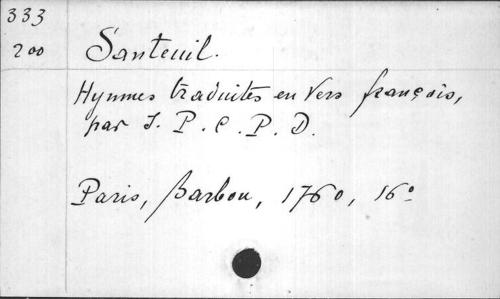 333
200
Santeuil.
Hymnes traduites en vers françois,
par J. P. C. P. D.
Paris, Barbou, 1760, 16º